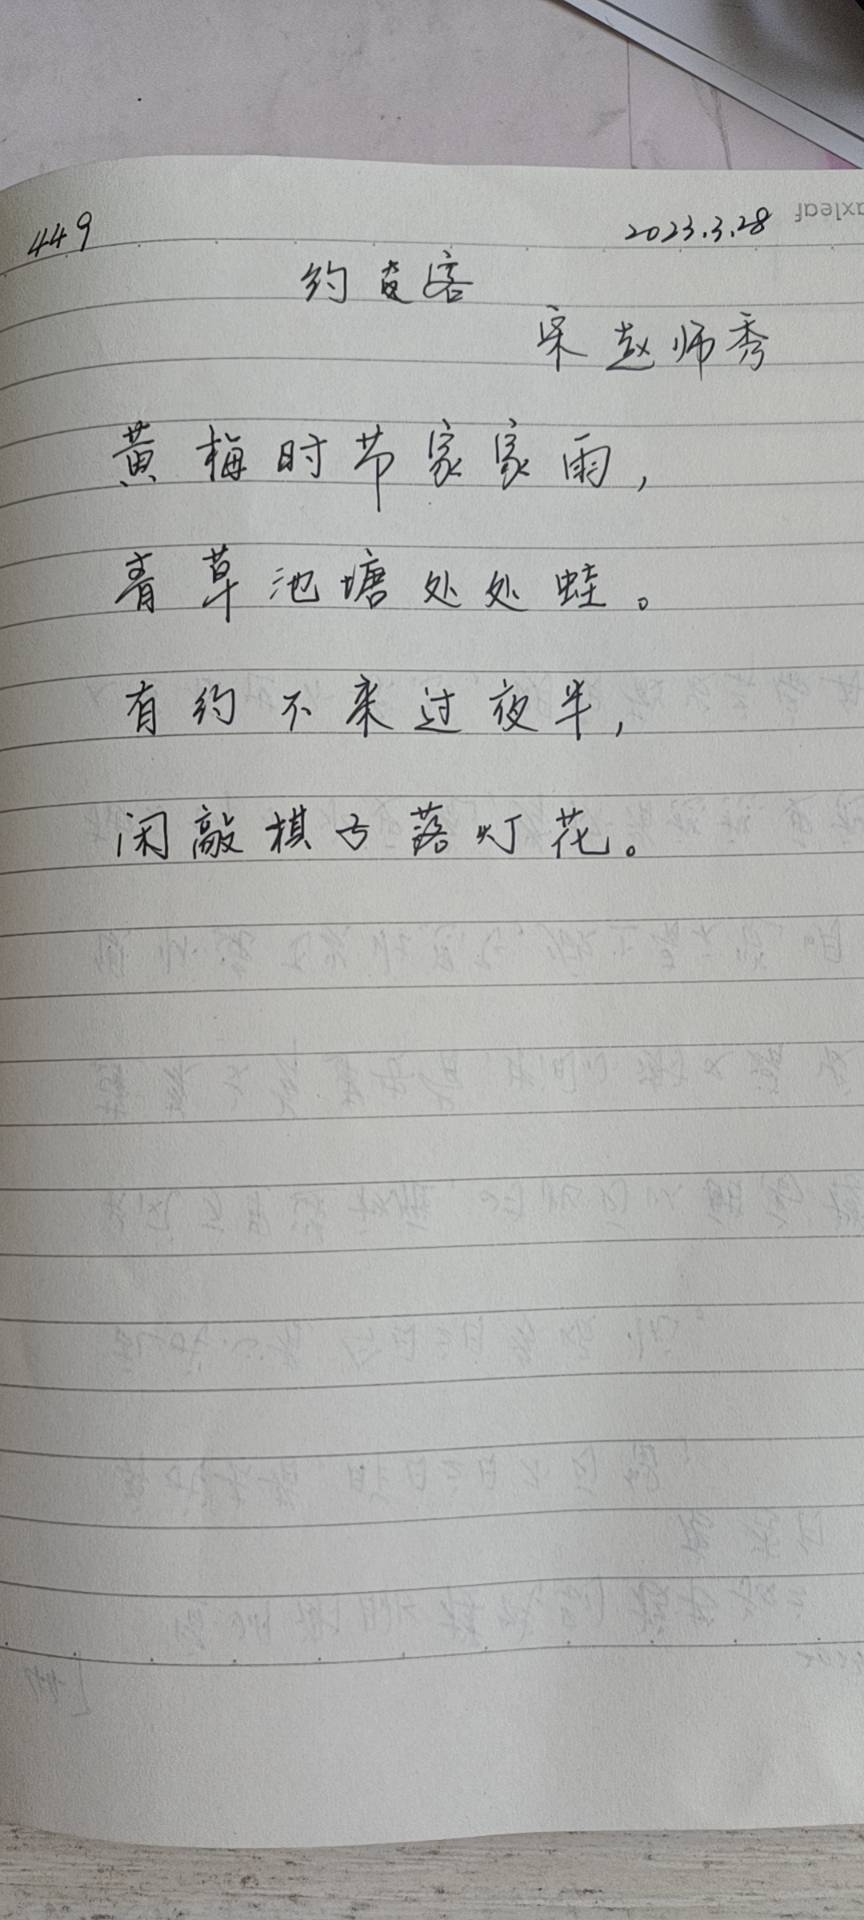 449
2023.3.28
约客
宋 赵师秀
黄梅时节家家雨，
青草池塘处处蛙。
有约不来过夜半，
闲敲棋子落灯花。